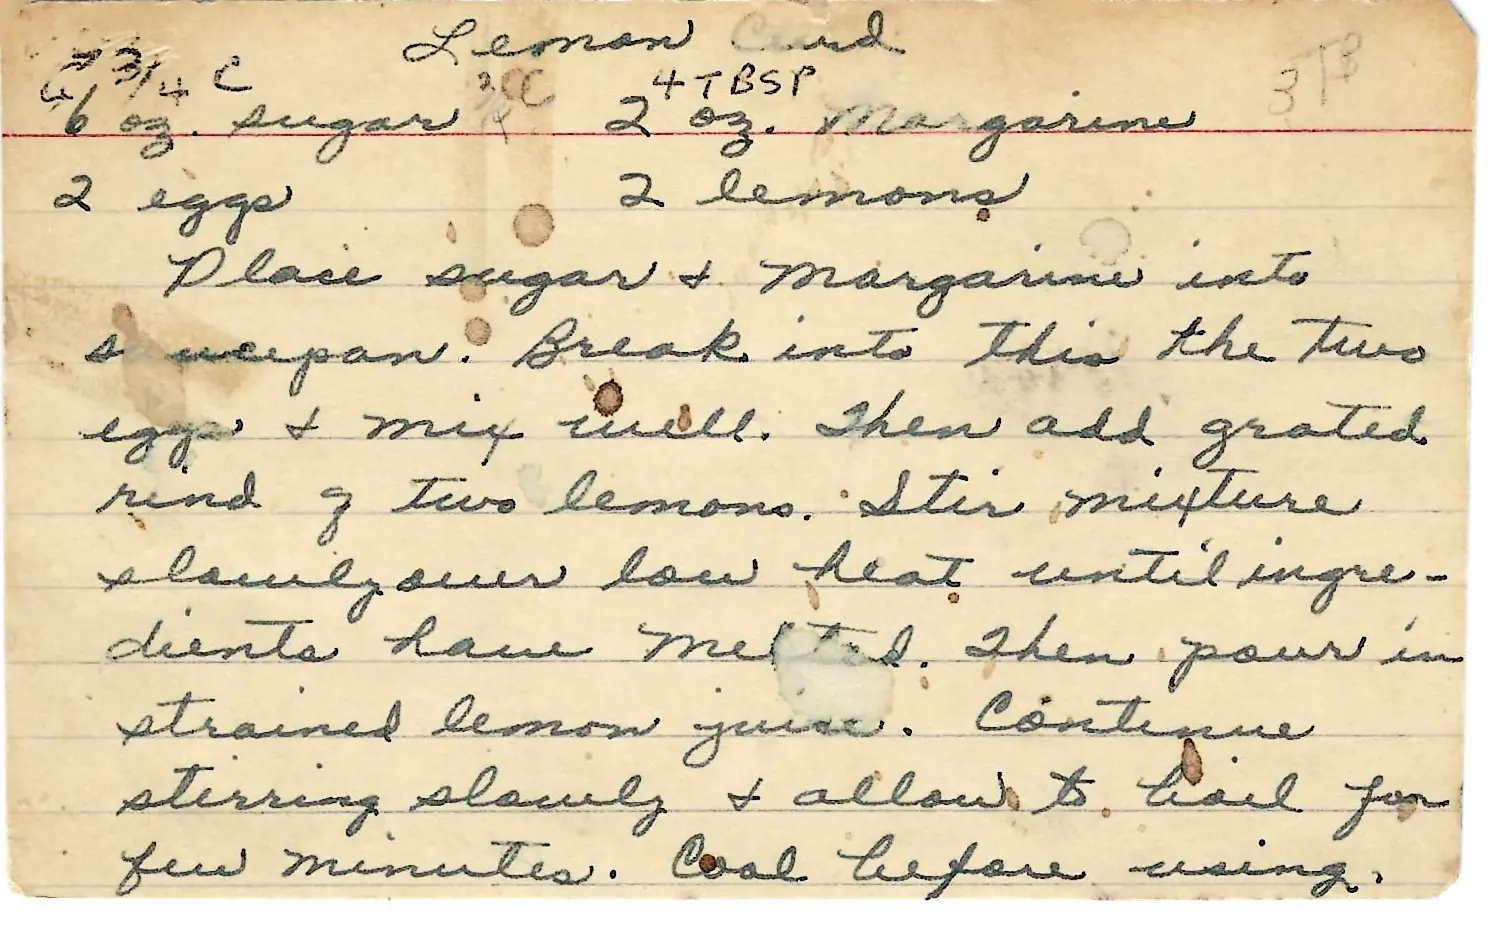 Lemon Curd
3/4 C 4 TBSP 3 TB
6 oz. sugar 2 oz. Margarine
2 eggs 2 lemons
Place sugar & margarine into
saucepan. Break into this the two
eggs & mix well. Then add grated
rind of two lemons. Stir mixture
slowly over low heat until ingre-
dients have melted. Then pour in
strained lemon juice. Continue
stirring slowly & allow to boil for
few minutes. Cool before using.